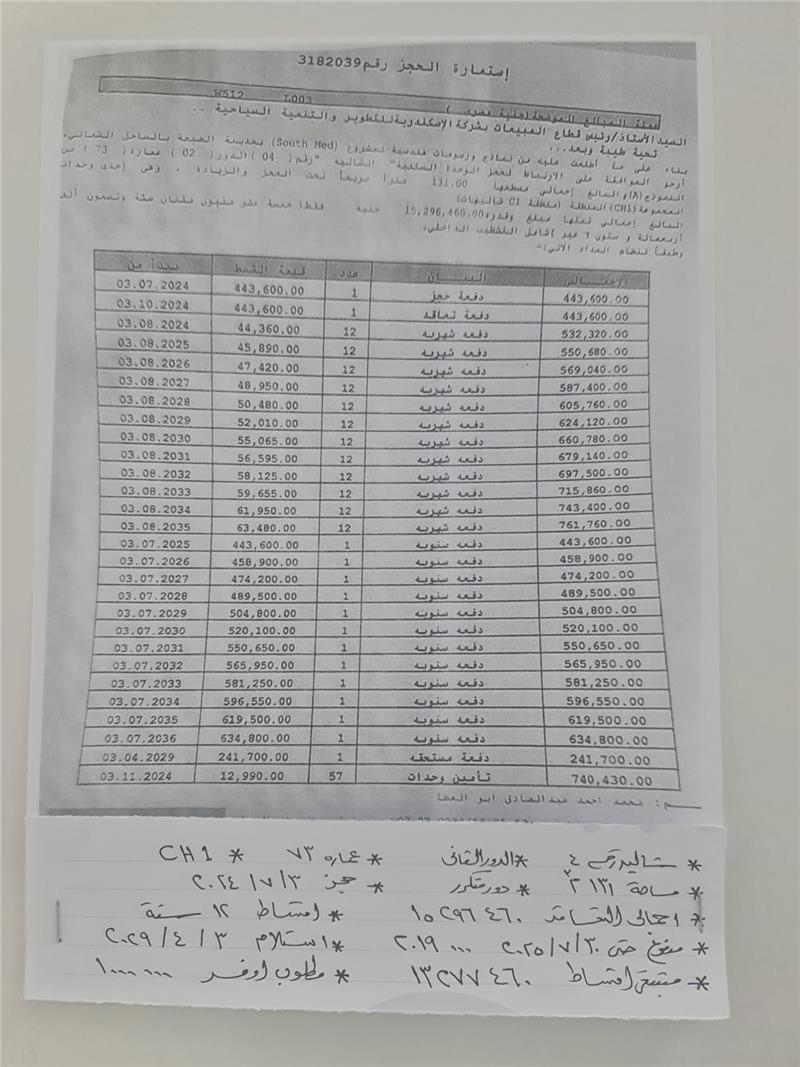 إستمارة الحجز رقم 3182039
W512 L003
عملة المبالغ الموضحة (جنيه مصرى )
السيد الأستاذ/رئيس قطاع المبيعات بشركة الإسكندرية للتطوير والتنمية السياحية ..
تحية طيبة وبعد...
بناء على ما أطلعت عليه من نماذج ورسومات هندسية لمشروع (South Med) بمدينة الضبعة بالساحل الشمالى،
أرجو الموافقة على الارتباط لحجز الوحدة السكنية" الشالية "رقم( 04 )الدور( 02 ) عمارة( 73 ) من
النموذج(A)و البالغ إجمالى مسطحها 131.00 متراً مربعاً تحت العجز والزيادة ، وهى إحدى وحدات
المجموعة(CH1)المنطقة (منطقة C1 شاليهات)
البالغ إجمالى ثمنها مبلغ وقدره15,296,460.00 جنيه فقط( خمسة عشر مليون مئتان ستة وتسعون ألف
أربعمائة و ستون لا غير )شامل التشطيب الداخلى.
وطبقاً لنظام السداد الآتي:-
الإجمـــالى البيـــــان عدد قيمة القسط يبدأ من
443,600.00 دفعة حجز 1 443,600.00 03.07.2024
443,600.00 دفعة تعاقد 1 443,600.00 03.10.2024
532,320.00 دفعه شهريه 12 44,360.00 03.08.2024
550,680.00 دفعه شهريه 12 45,890.00 03.08.2025
569,040.00 دفعه شهريه 12 47,420.00 03.08.2026
587,400.00 دفعه شهريه 12 48,950.00 03.08.2027
605,760.00 دفعه شهريه 12 50,480.00 03.08.2028
624,120.00 دفعه شهريه 12 52,010.00 03.08.2029
660,780.00 دفعه شهريه 12 55,065.00 03.08.2030
679,140.00 دفعه شهريه 12 56,595.00 03.08.2031
697,500.00 دفعه شهريه 12 58,125.00 03.08.2032
715,860.00 دفعه شهريه 12 59,655.00 03.08.2033
743,400.00 دفعه شهريه 12 61,950.00 03.08.2034
761,760.00 دفعه شهريه 12 63,480.00 03.08.2035
443,600.00 دفعه سنويه 1 443,600.00 03.07.2025
458,900.00 دفعه سنويه 1 458,900.00 03.07.2026
474,200.00 دفعه سنويه 1 474,200.00 03.07.2027
489,500.00 دفعه سنويه 1 489,500.00 03.07.2028
504,800.00 دفعه سنويه 1 504,800.00 03.07.2029
520,100.00 دفعه سنويه 1 520,100.00 03.07.2030
550,650.00 دفعه سنويه 1 550,650.00 03.07.2031
565,950.00 دفعه سنويه 1 565,950.00 03.07.2032
581,250.00 دفعه سنويه 1 581,250.00 03.07.2033
596,550.00 دفعه سنويه 1 596,550.00 03.07.2034
619,500.00 دفعه سنويه 1 619,500.00 03.07.2035
634,800.00 دفعه سنويه 1 634,800.00 03.07.2036
241,700.00 دفعة مستحقه 1 241,700.00 03.04.2029
740,430.00 تأمين وحدات 57 12,990.00 03.11.2024
محمد احمد عبدالصادق ابو العطا
* شاليه رقم ٤ * الدور الثانى * عماره ٧٣ * CH1
* مساحة ١٣١ م٢ * دور متكرر * حجز ٣ / ٧ / ٢٠٢٤
* اجمالى التعاقد ١٥٢٩٦٤٦٠ * اقساط ١٢ سنة
* مدفوع حتى ٣٠/٧/٢٠٢٥ ٢٠١٩٠٠٠ * استلام ٣ / ٤ / ٢٠٢٩
* متبقى اقساط ١٣٢٧٧٤٦٠ * مطلوب اوفر ١٠٠٠٠٠٠